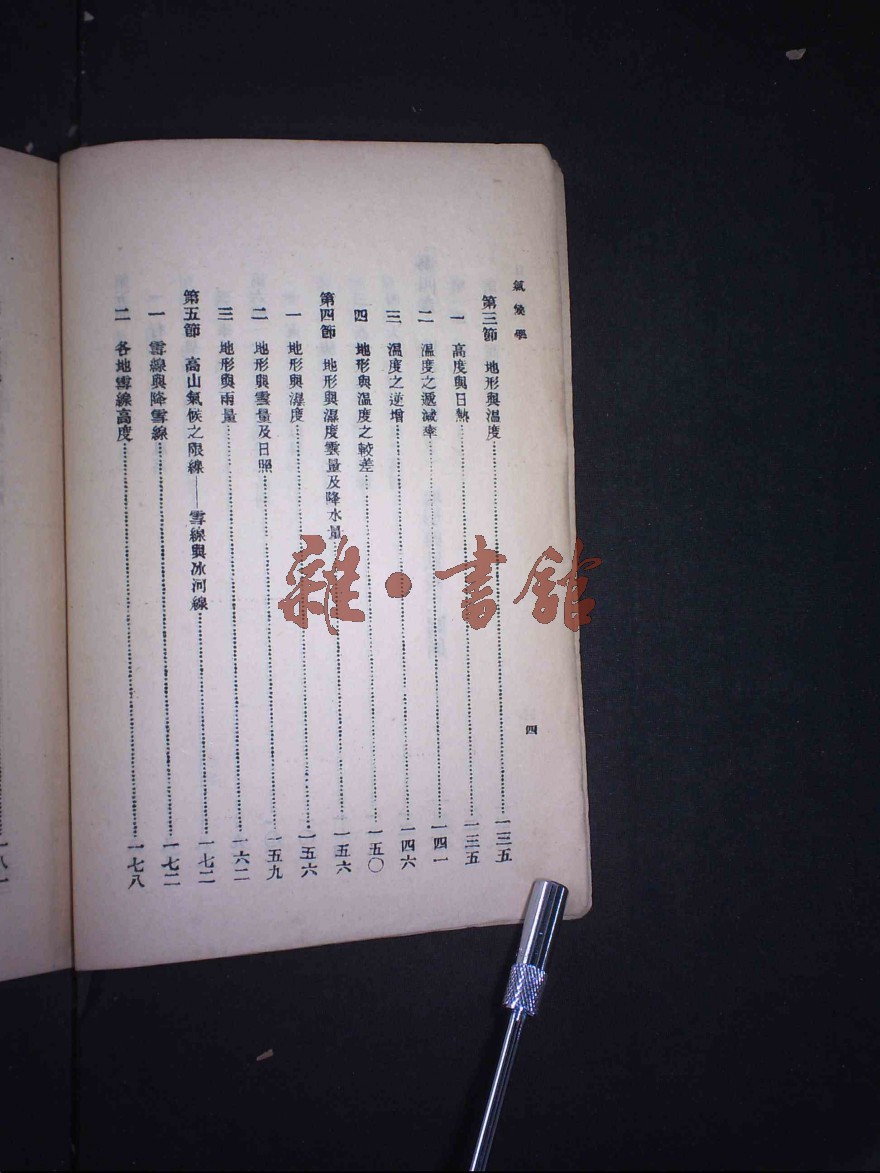 氣候學
四
第三節 地形與溫度……一三五
一 高度與日熱……一三五
二 溫度之遞減率……一四一
三 溫度之逆增……一四六
四 地形與溫度之較差……一五〇
第四節 地形與濕度雲量及降水量……一五六
一 地形與濕度……一五六
二 地形與雲量及日照……一五九
三 地形與雨量……一六二
第五節 高山氣候之限線——雪線與冰河線……一七二
一 雪線與降雪線……一七二
二 各地雪線高度……一七八
雜·書館
一八一